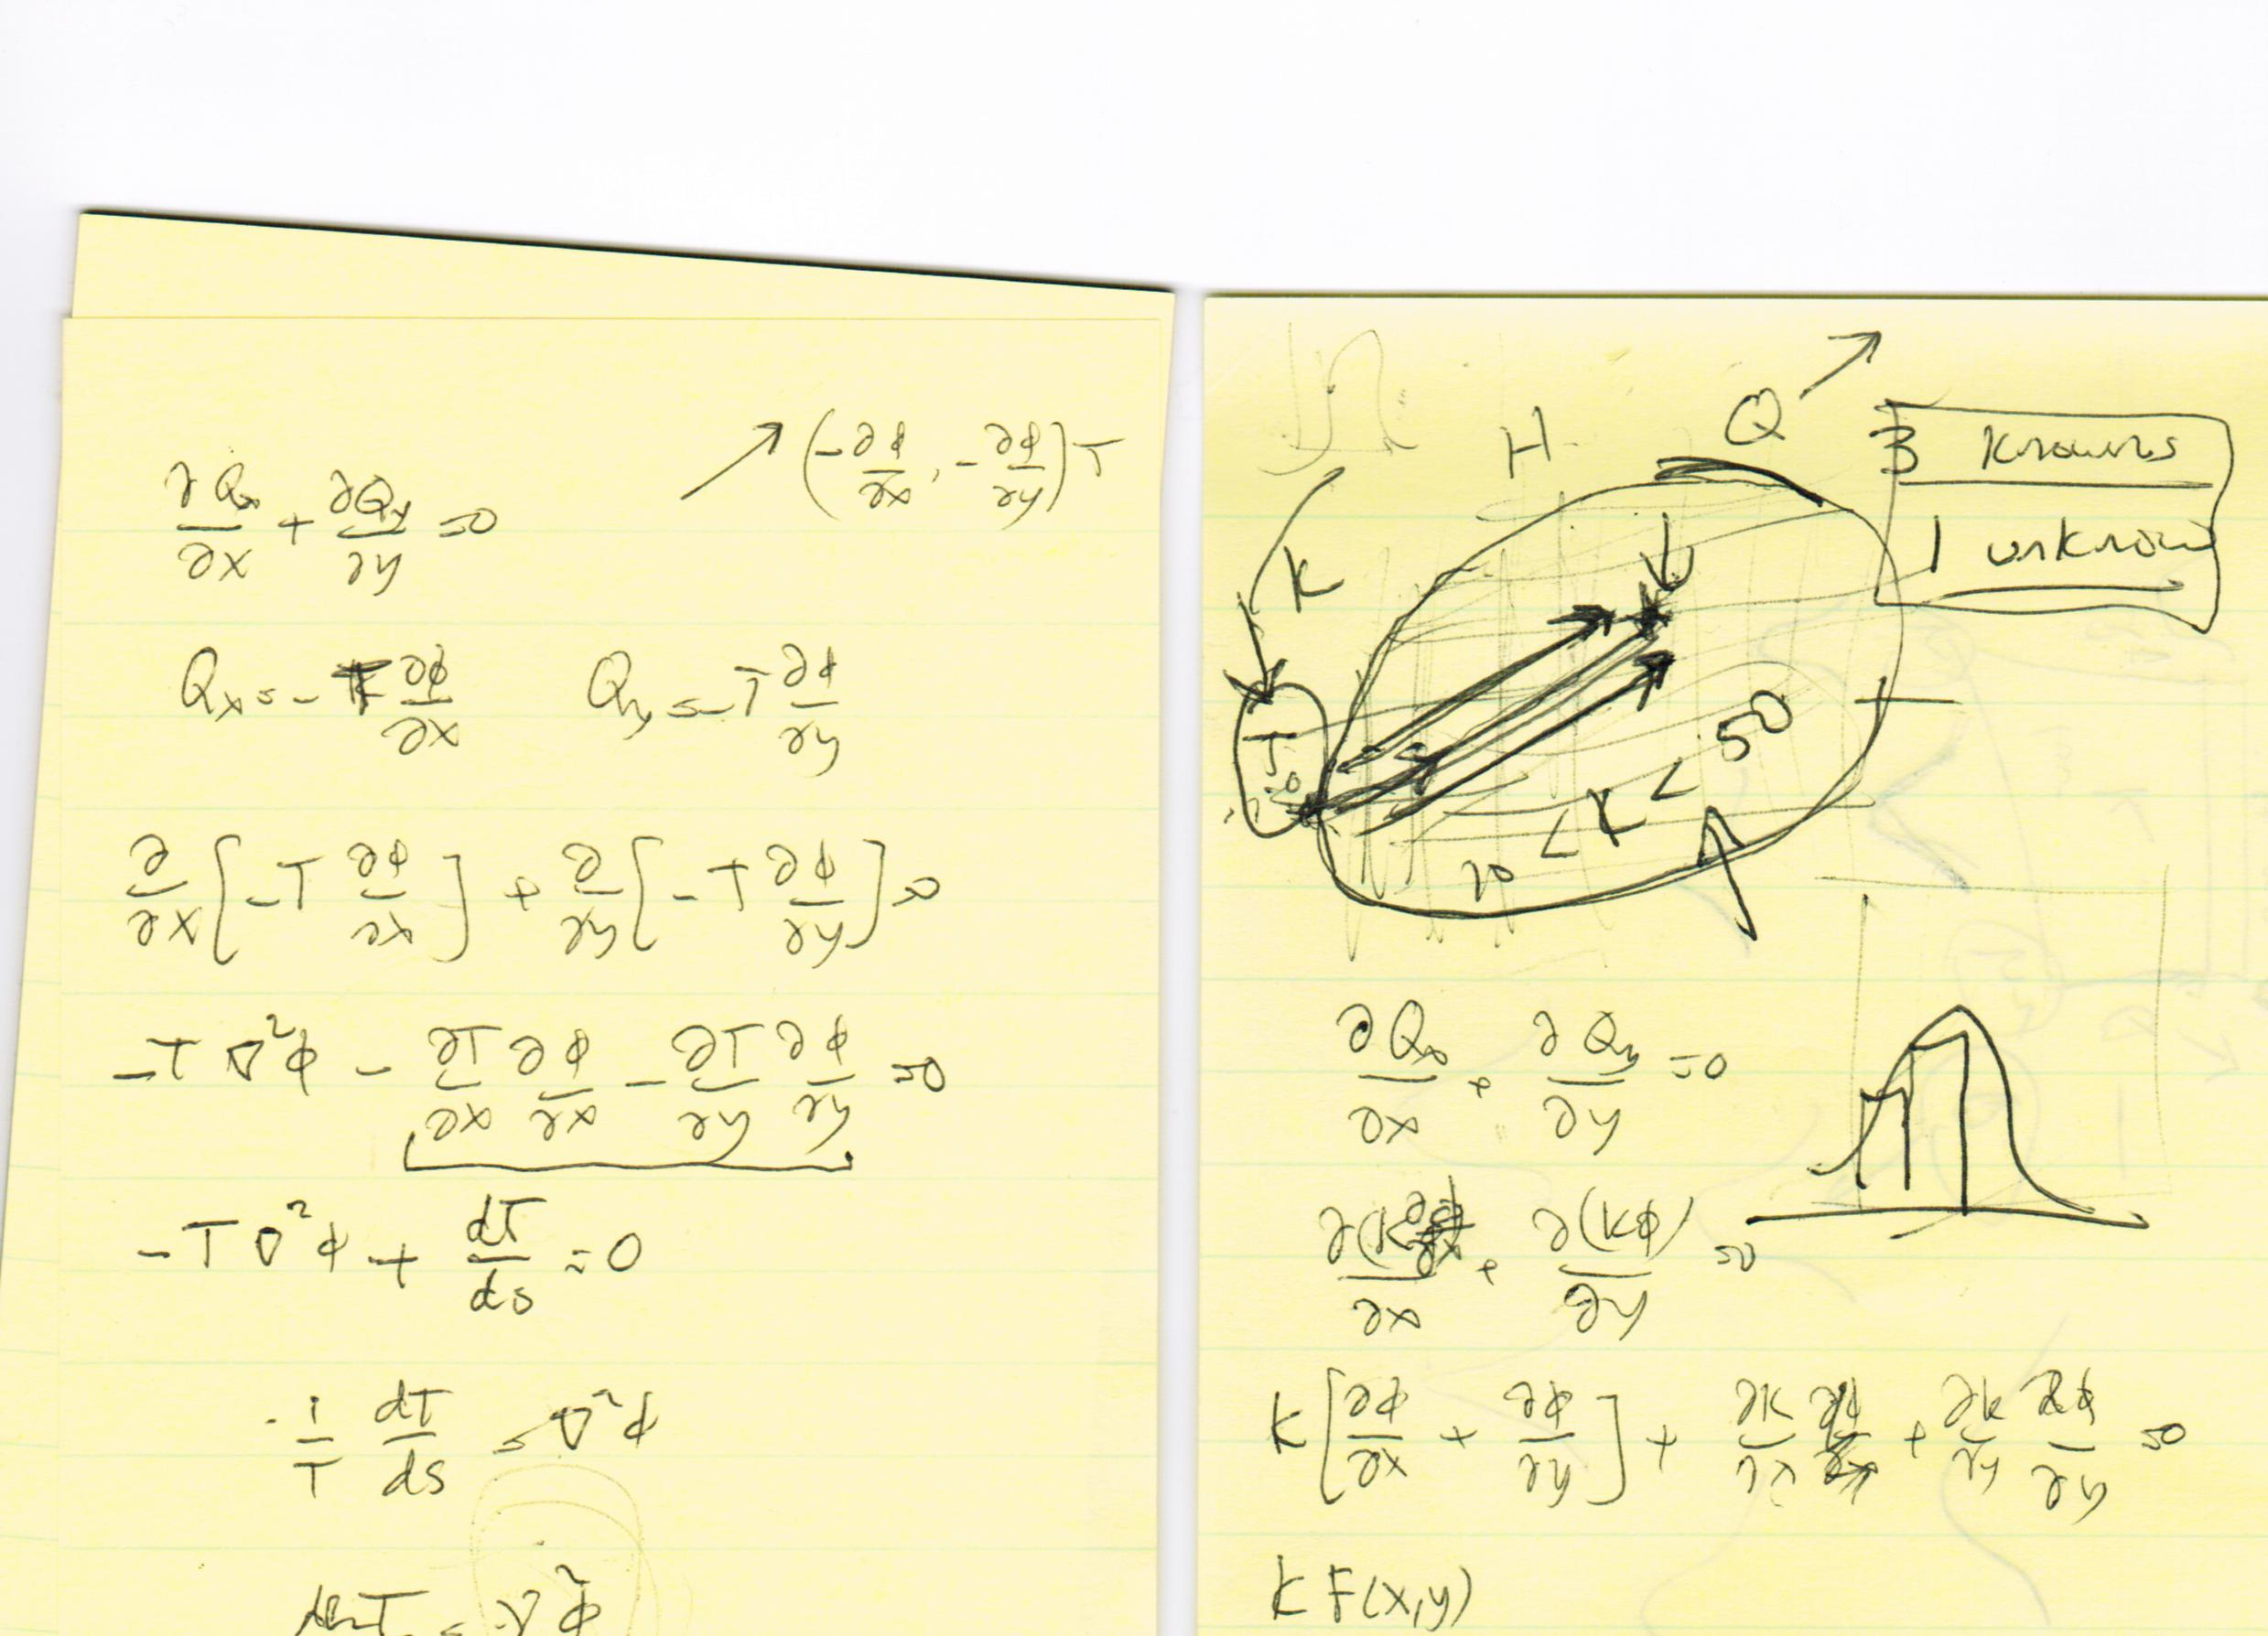 (-∂ϕ/∂x, -∂ϕ/∂y)T
∂Qx/∂x + ∂Qy/∂y = 0
Qx = - T ∂ϕ/∂x    Qy = -T ∂ϕ/∂y
∂/∂x [-T ∂ϕ/∂x] + ∂/∂y [-T ∂ϕ/∂y] = 0
-T ∇²ϕ - ∂T/∂x ∂ϕ/∂x - ∂T/∂y ∂ϕ/∂y = 0
-T ∇²ϕ + dT/ds = 0
1/T dT/ds = ∇²ϕ
= ∇²ϕ
H Q
3 knowns
1 unknown
K
T
20 < K < 50
∂Qx/∂x + ∂Qy/∂y = 0
∂(Kϕ)/∂y = 0
K [∂ϕ/∂x + ∂ϕ/∂y] + ∂K/∂x ∂ϕ/∂x + ∂K/∂y ∂ϕ/∂y = 0
K F(x,y)